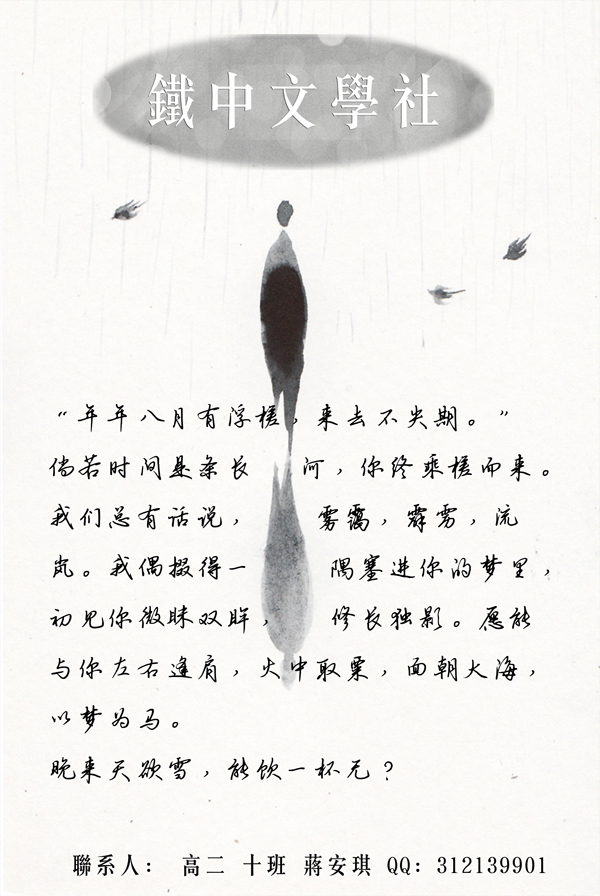 鐵中文學社
“年年八月有浮槎，来去不失期。”
倘若时间是条长河，你终乘槎而来。
我们总有话说，雾霭，霹雳，流
岚。我偶掇得一隅塞进你的梦里，
初见你微眯双眸，修长独影。愿能
与你左右逢肩，火中取栗，面朝大海，
以梦为马。
晚来天欲雪，能饮一杯无？
聯系人： 高二 十班 蔣安琪 QQ: 312139901